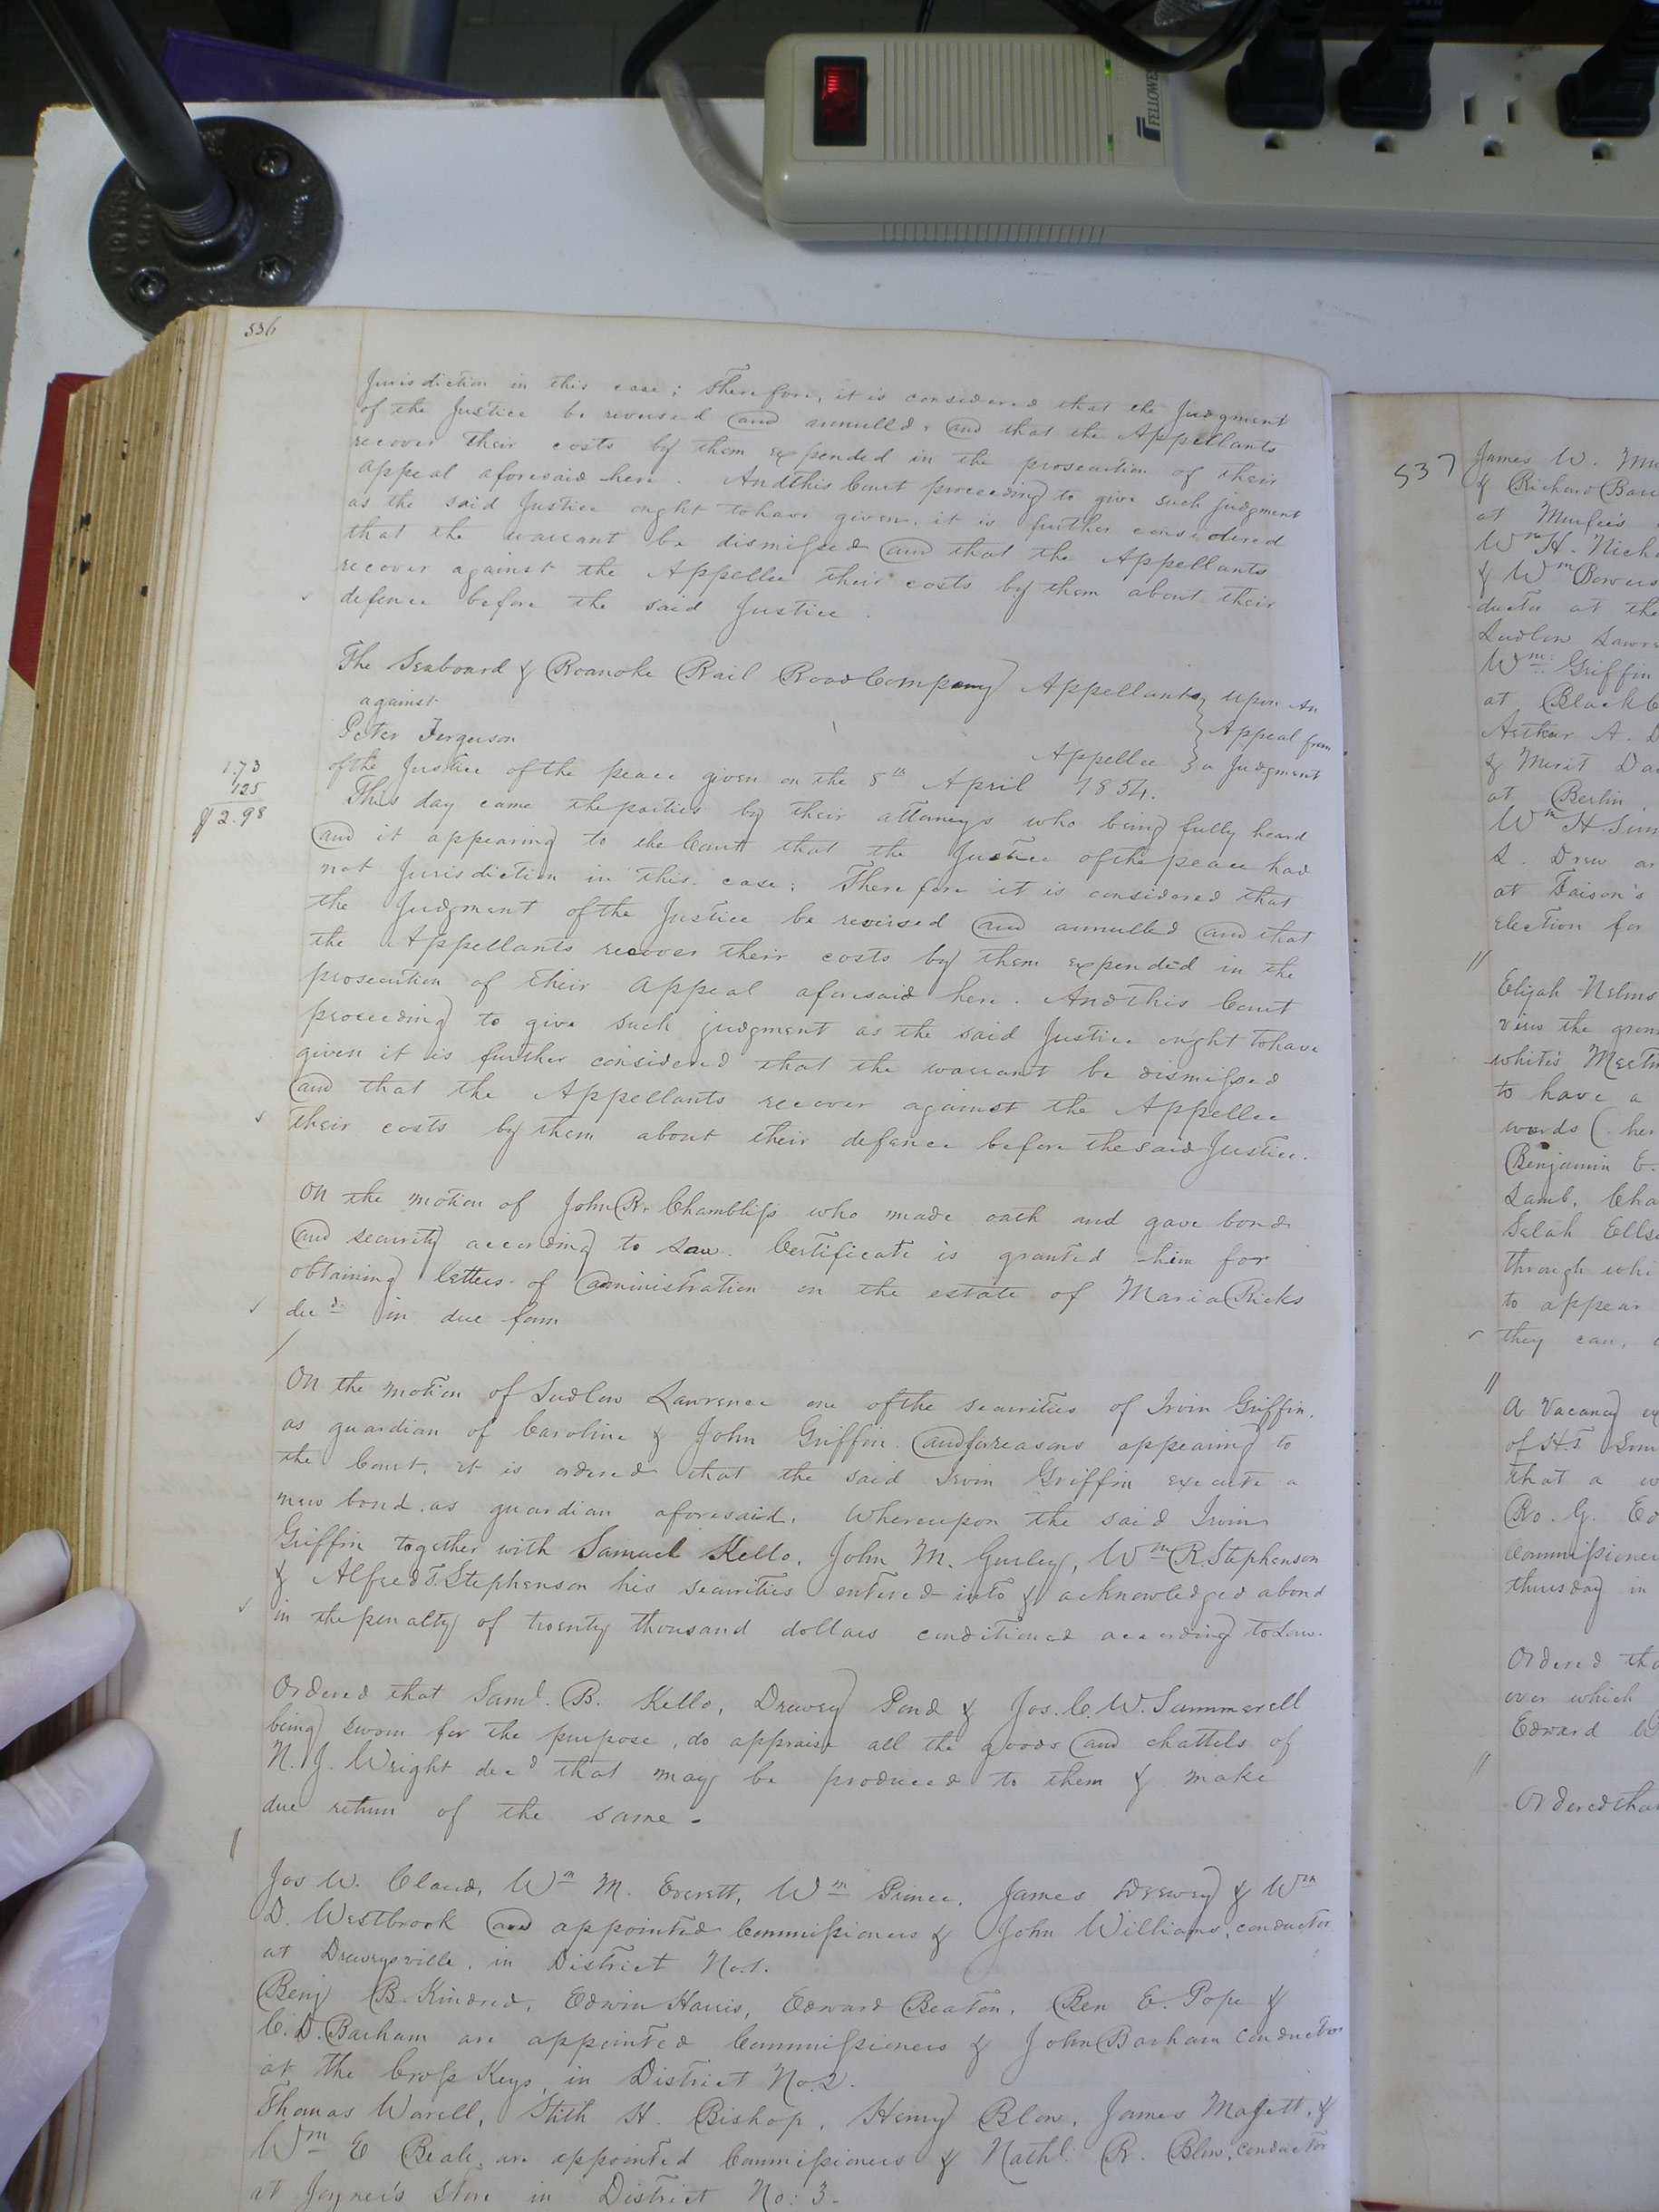 FELLOWES
536
Jurisdiction in this case; Therefore, it is considered that the Judgment
of the Justice be reversed and annulled, and that the Appellants
recover their costs by them expended in the prosecution of their
appeal aforesaid here. And this Court proceeding to give such judgment
as the said Justice ought to have given, it is further considered
that the warrant be dismissed and that the Appellants
recover against the Appellee their costs by them about their
defence before the said Justice.
The Seaboard & Roanoke Rail Road Company Appellants upon an
against
Appeal from
Peter Ferguson Appellee a Judgment
of the Justice of the peace given on the 8th April 1854.
1.73
125
$2.98
This day came the parties by their attorneys who being fully heard
and it appearing to the Court that the Justice of the peace had
not Jurisdiction in this case; Therefore it is considered that
the Judgment of the Justice be reversed and annulled and that
the Appellants recover their costs by them expended in the
prosecution of their Appeal aforesaid here. And this Court
proceeding to give such judgment as the said Justice ought to have
given it is further considered that the warrant be dismissed
and that the Appellants recover against the Appellee
their costs by them about their defence before the said Justice.
On the motion of John R. Chambliss who made oath and gave bond
and security according to Law. Certificate is granted him for
obtaining letters of administration on the estate of Maria Ricks
decd in due form
On the motion of Ludlow Lawrence one of the securities of Irvin Griffin,
as guardian of Caroline & John Griffin. and for reasons appearing to
the Court, it is ordered that the said Irvin Griffin execute a
new bond as guardian aforesaid. Whereupon the said Irvin
Griffin together with Samuel Kello, John M. Gurley, Wm R. Stephenson
& Alfred T. Stephenson his securities entered into & acknowledged a bond
in the penalty of twenty thousand dollars conditioned according to Law.
Ordered that Saml. B. Kello, Drewry Pond & Jos. C. W. Summerell
being sworn for the purpose, do appraise all the goods and chattels of
N. J. Wright decd that may be produced to them & make
due return of the same.
Jos W. Claud, Wm M. Everett, Wm Prince, James Drewry & Wm
D. Westbrook are appointed Commissioners & John Williams, conductor
at Drewrysville, in District No. 1.
Benj B. Kindred, Edwin Harris, Edward Beaton, Ben E. Pope &
C. D. Barham are appointed Commissioners & John Barham conductor
at the Cross Keys, in District No. 2.
Thomas Warell, Stith H. Bishop, Henry Blow, James Magett, &
Wm E Beale are appointed Commissioners & Nathl. R. Blow, conductor
at Joyner's Store in District No: 3.
537
James W.
& Richard
at Murfee's
Wm H. Nich
& Wm Bowers
ductor at the
Ludlow Lawre
Wm Griffin
at Black C
Arthur A. D
& Merit Da
at Berlin,
Wm H. Sim
S. Drew an
at Faison's
election for
Elijah Nelms
view the groun
white's Meetin
to have a
words (her
Benjamin E.
Lamb, Cha
Selah Ells
through whi
to appear
they can,
A Vacancy ex
of H.T.
that a w
Ro. G. Ed
Commissioner
thursday in
Ordered tha
over which
Edward W
Ordered that